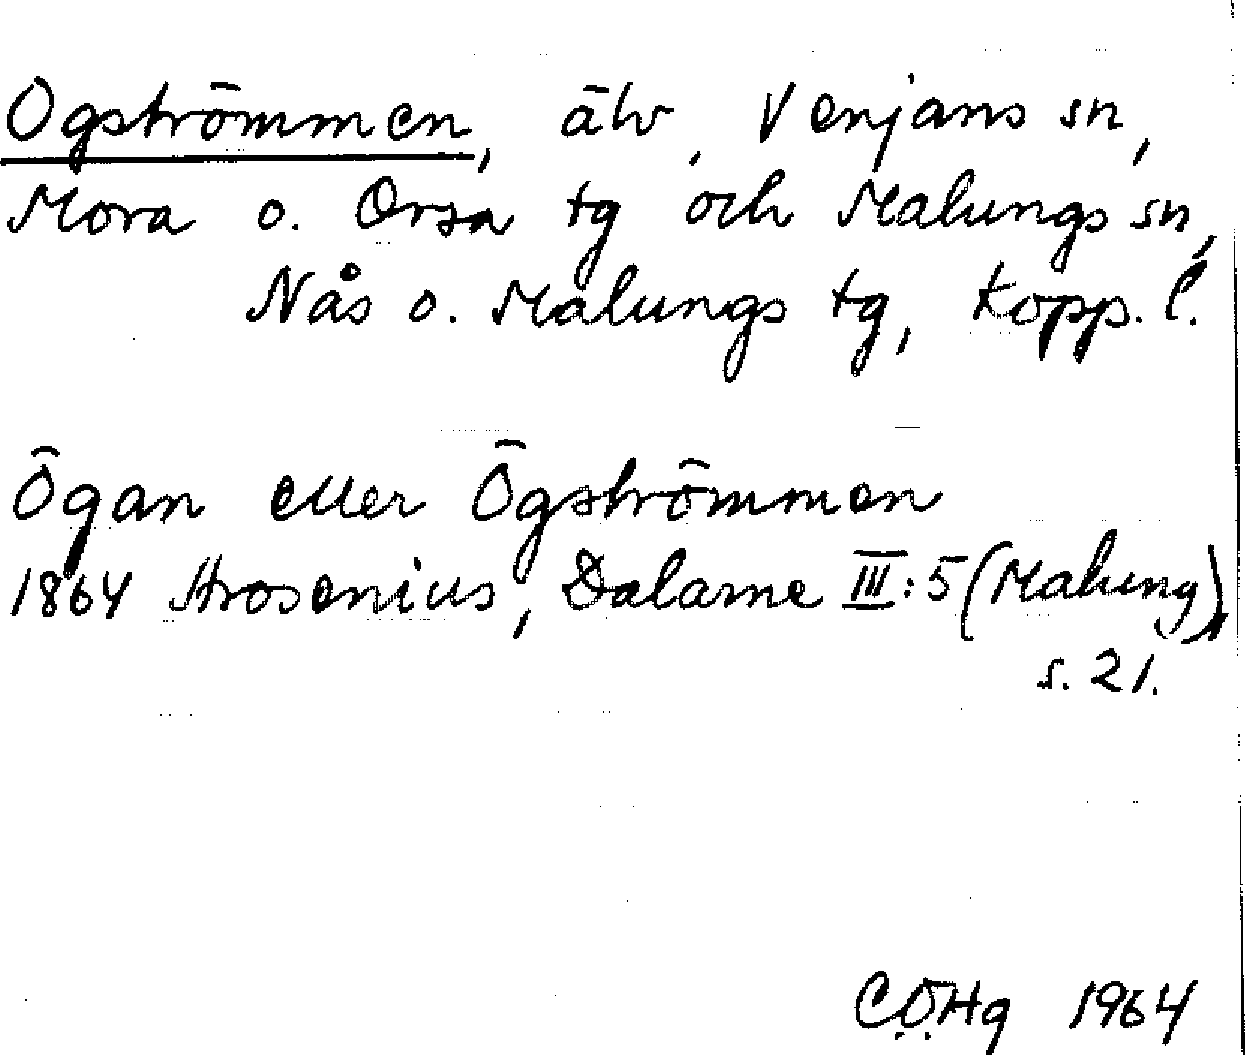 Ogströmmen, älv, Venjans sn,
Mora o. Orsa tg och Malungs sn,
Nås o. Malungs tg, Kopp. l.
Ögan eller Ögströmmen
1864 Arosenius, Dalarne III:5 (Malung)
s. 21.
CÖHg 1964